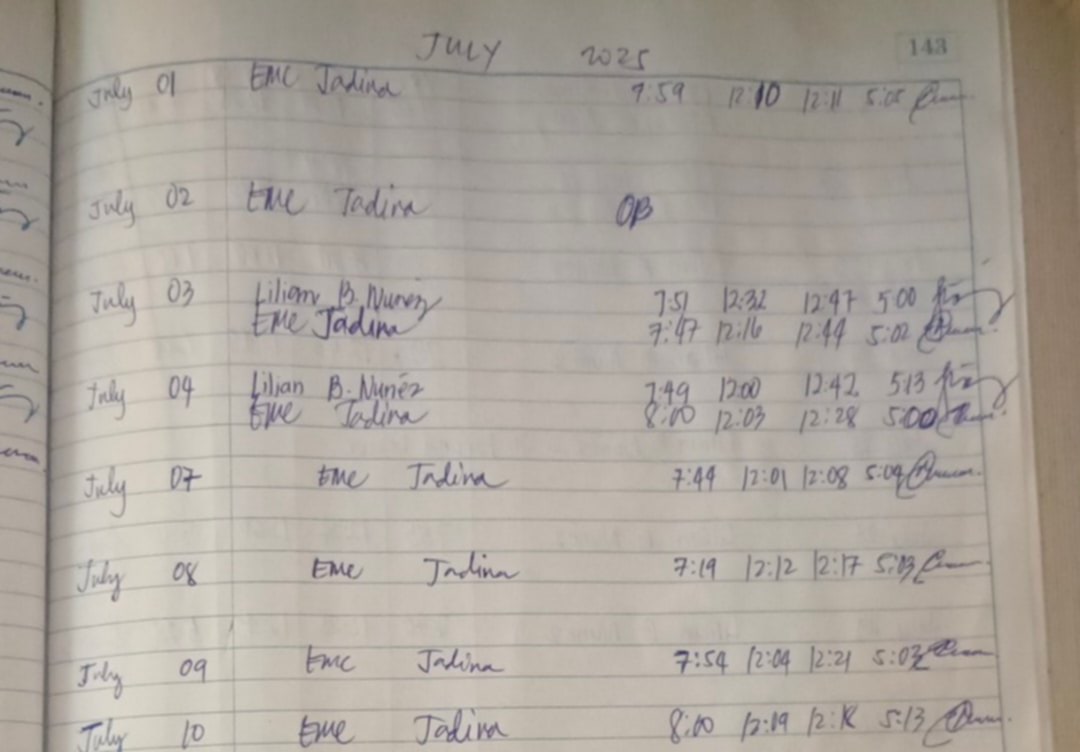 JULY 2025 143
July 01 Eme Jadina 7:59 12:10 12:11 5:05
July 02 Eme Jadina OB
July 03 Lilian B. Nunez 7:51 12:32 12:47 5:00
Eme Jadina 7:47 12:16 12:44 5:02
July 04 Lilian B. Nunez 7:49 12:00 12:42 5:13
Eme Jadina 8:00 12:03 12:28 5:00
July 07 Eme Jadina 7:44 12:01 12:08 5:09
July 08 Eme Jadina 7:19 12:12 12:17 5:13
July 09 Eme Jadina 7:54 12:04 12:21 5:03
July 10 Eme Jadina 8:00 12:19 5:13